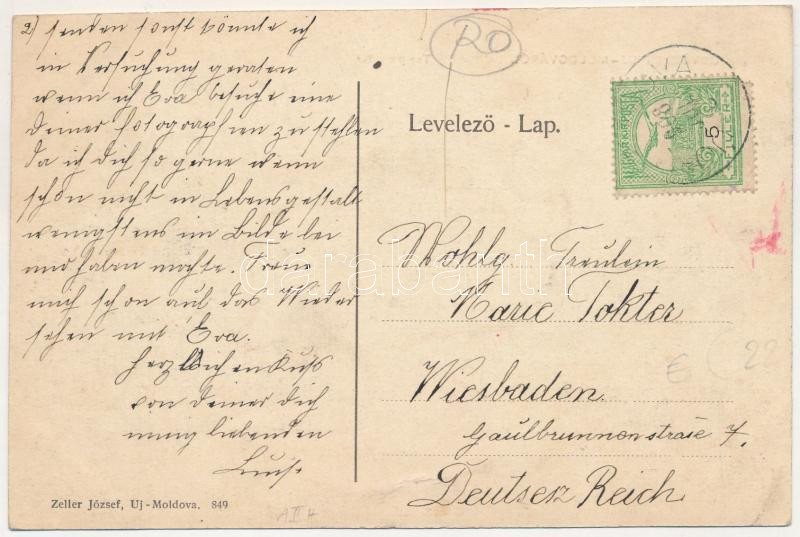 2) senden sonst könnte ich
in Versuchung geraten
wenn ich Eva besuche eine
deiner Fotographien zu stehlen
da ich dich so gerne wenn
schon nicht in Lebensgestalt
wenigstens im Bilde bei
mir haben möchte. Freue
mich schon auf das Wieder
sehen mit Eva.
Herzlichen Kuss
von deiner dich
innig liebenden
RO
Levelező - Lap.
MAGYAR KIR. POSTA
5
Wohlg. Freulein
Marie Tokter
Wiesbaden
Gaulbrunnenstrase 7.
Deutsch Reich
E 22
darabanth.com
Zeller József, Uj-Moldova. 849